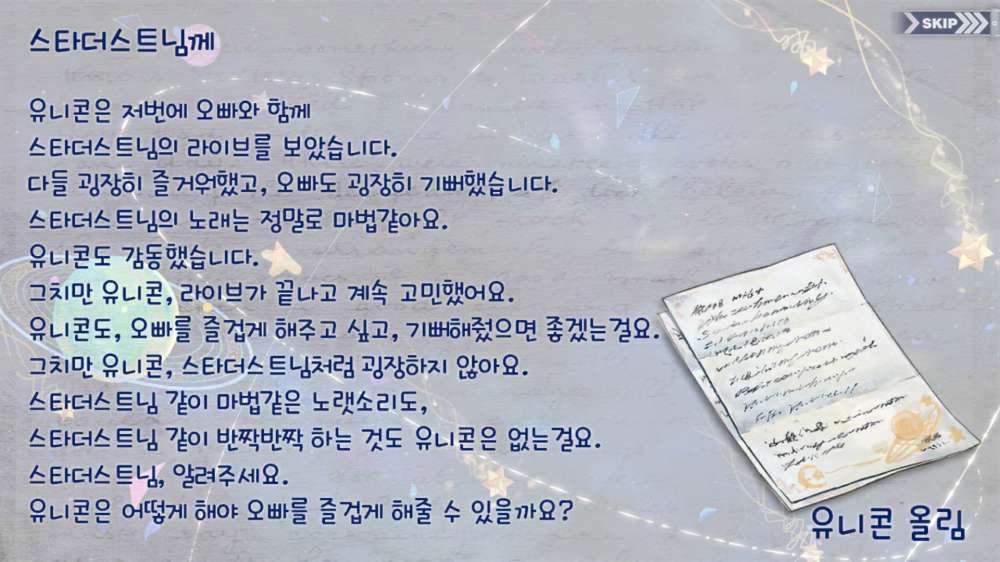 SKIP
스타더스트님께
유니콘은 저번에 오빠와 함께
스타더스트님의 라이브를 보았습니다.
다들 굉장히 즐거워했고, 오빠도 굉장히 기뻐했습니다.
스타더스트님의 노래는 정말로 마법같아요.
유니콘도 감동했습니다.
그치만 유니콘, 라이브가 끝나고 계속 고민했어요.
유니콘도, 오빠를 즐겁게 해주고 싶고, 기뻐해줬으면 좋겠는걸요.
그치만 유니콘, 스타더스트님처럼 굉장하지 않아요.
스타더스트님 같이 마법같은 노랫소리도,
스타더스트님 같이 반짝반짝 하는 것도 유니콘은 없는걸요.
스타더스트님, 알려주세요.
유니콘은 어떻게 해야 오빠를 즐겁게 해줄 수 있을까요?
유니콘 올림